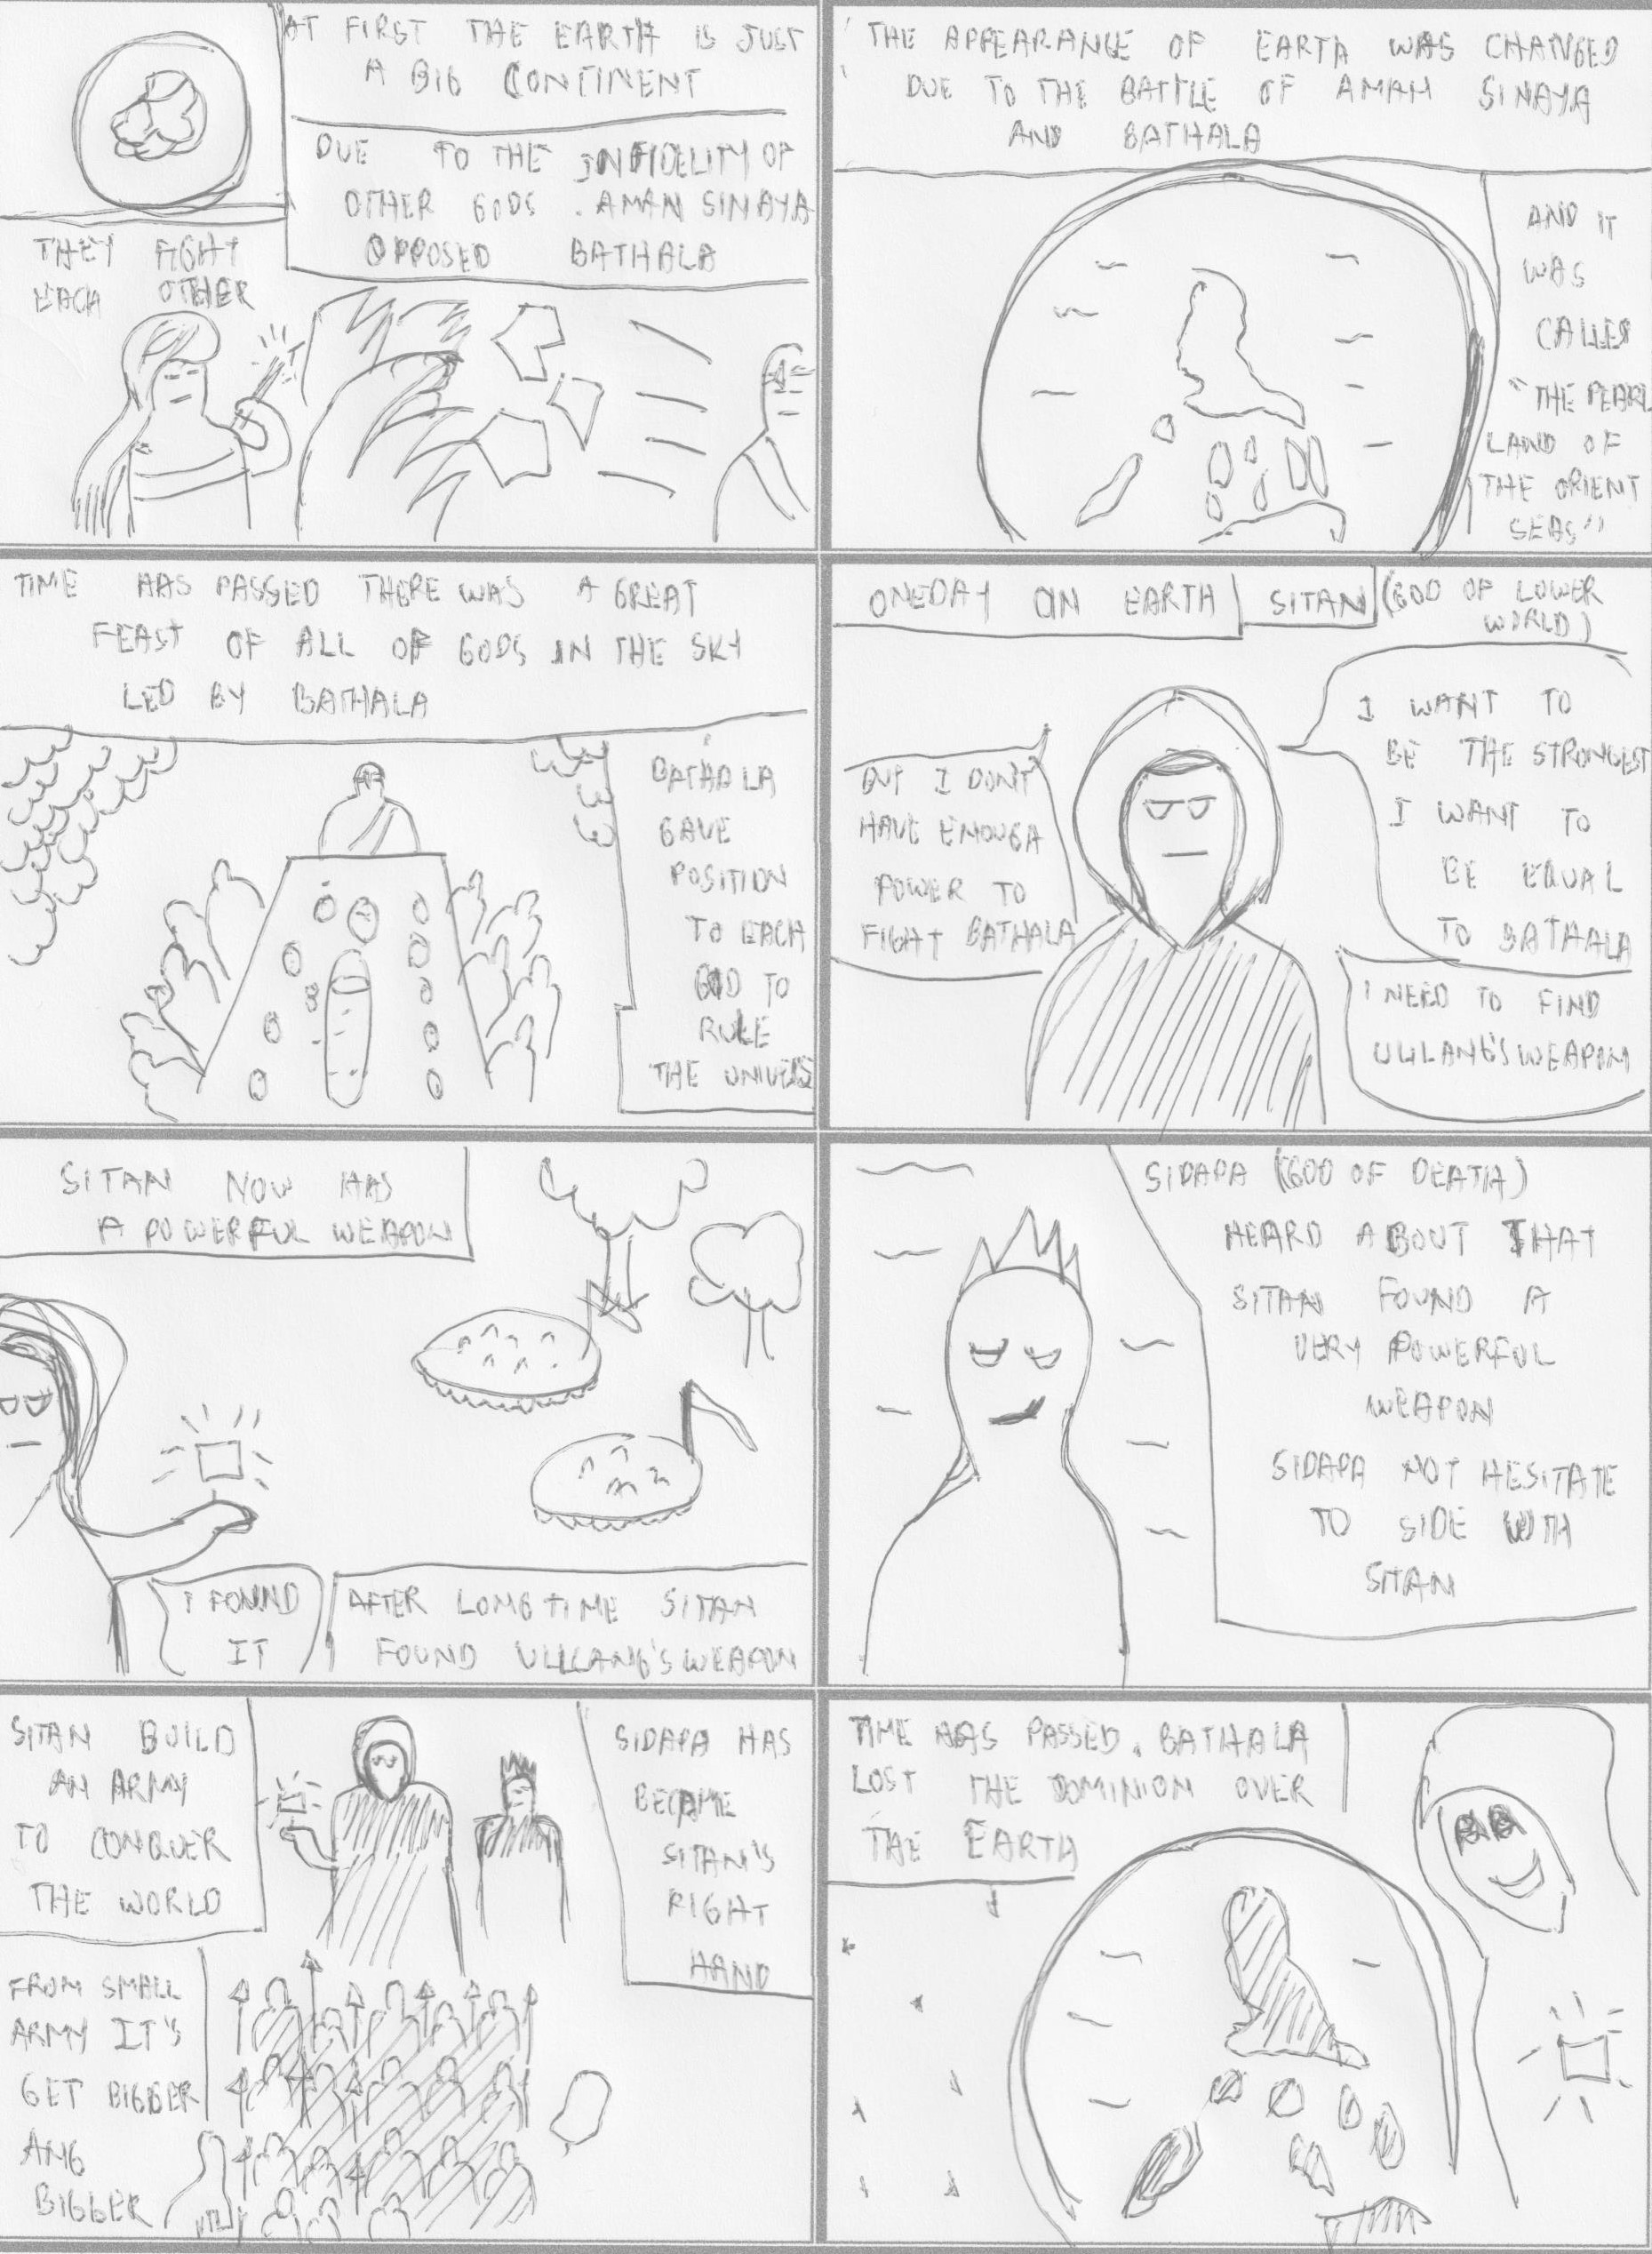 AT FIRST THE EARTH IS JUST
A BIG CONTINENT
DUE TO THE INFIDELITY OF
OTHER GODS. AMAN SINAYA
OPPOSED BATHALA
THEY FIGHT
EACH OTHER
THE APPEARANCE OF EARTH WAS CHANGED
DUE TO THE BATTLE OF AMAN SINAYA
AND BATHALA
AND IT
WAS
CALLED
"THE PEARL
LAND OF
THE ORIENT
SEAS"
TIME HAS PASSED THERE WAS A GREAT
FEAST OF ALL OF GODS IN THE SKY
LED BY BATHALA
BATHALA
GAVE
POSITION
TO EACH
GOD TO
RULE
THE UNIVERS
ONEDAY ON EARTH
SITAN (GOD OF LOWER
WORLD)
I WANT TO
BE THE STRONGEST
I WANT TO
BE EQUAL
TO BATHALA
BUT I DON'T
HAVE ENOUGH
POWER TO
FIGHT BATHALA
I NEED TO FIND
ULILANG'S WEAPON
SITAN NOW HAS
A POWERFUL WEAPON
I FOUND
IT
AFTER LONG TIME SITAN
FOUND ULILANG'S WEAPON
SIDAPA (GOD OF DEATH)
HEARD ABOUT THAT
SITAN FOUND A
VERY POWERFUL
WEAPON
SIDAPA NOT HESITATE
TO SIDE WITH
SITAN
SITAN BUILD
AN ARMY
TO CONQUER
THE WORLD
SIDAPA HAS
BECAME
SITAN'S
RIGHT
HAND
FROM SMALL
ARMY IT'S
GET BIGGER
ANG
BIGGER
TIME HAS PASSED. BATHALA
LOST THE DOMINION OVER
THE EARTH